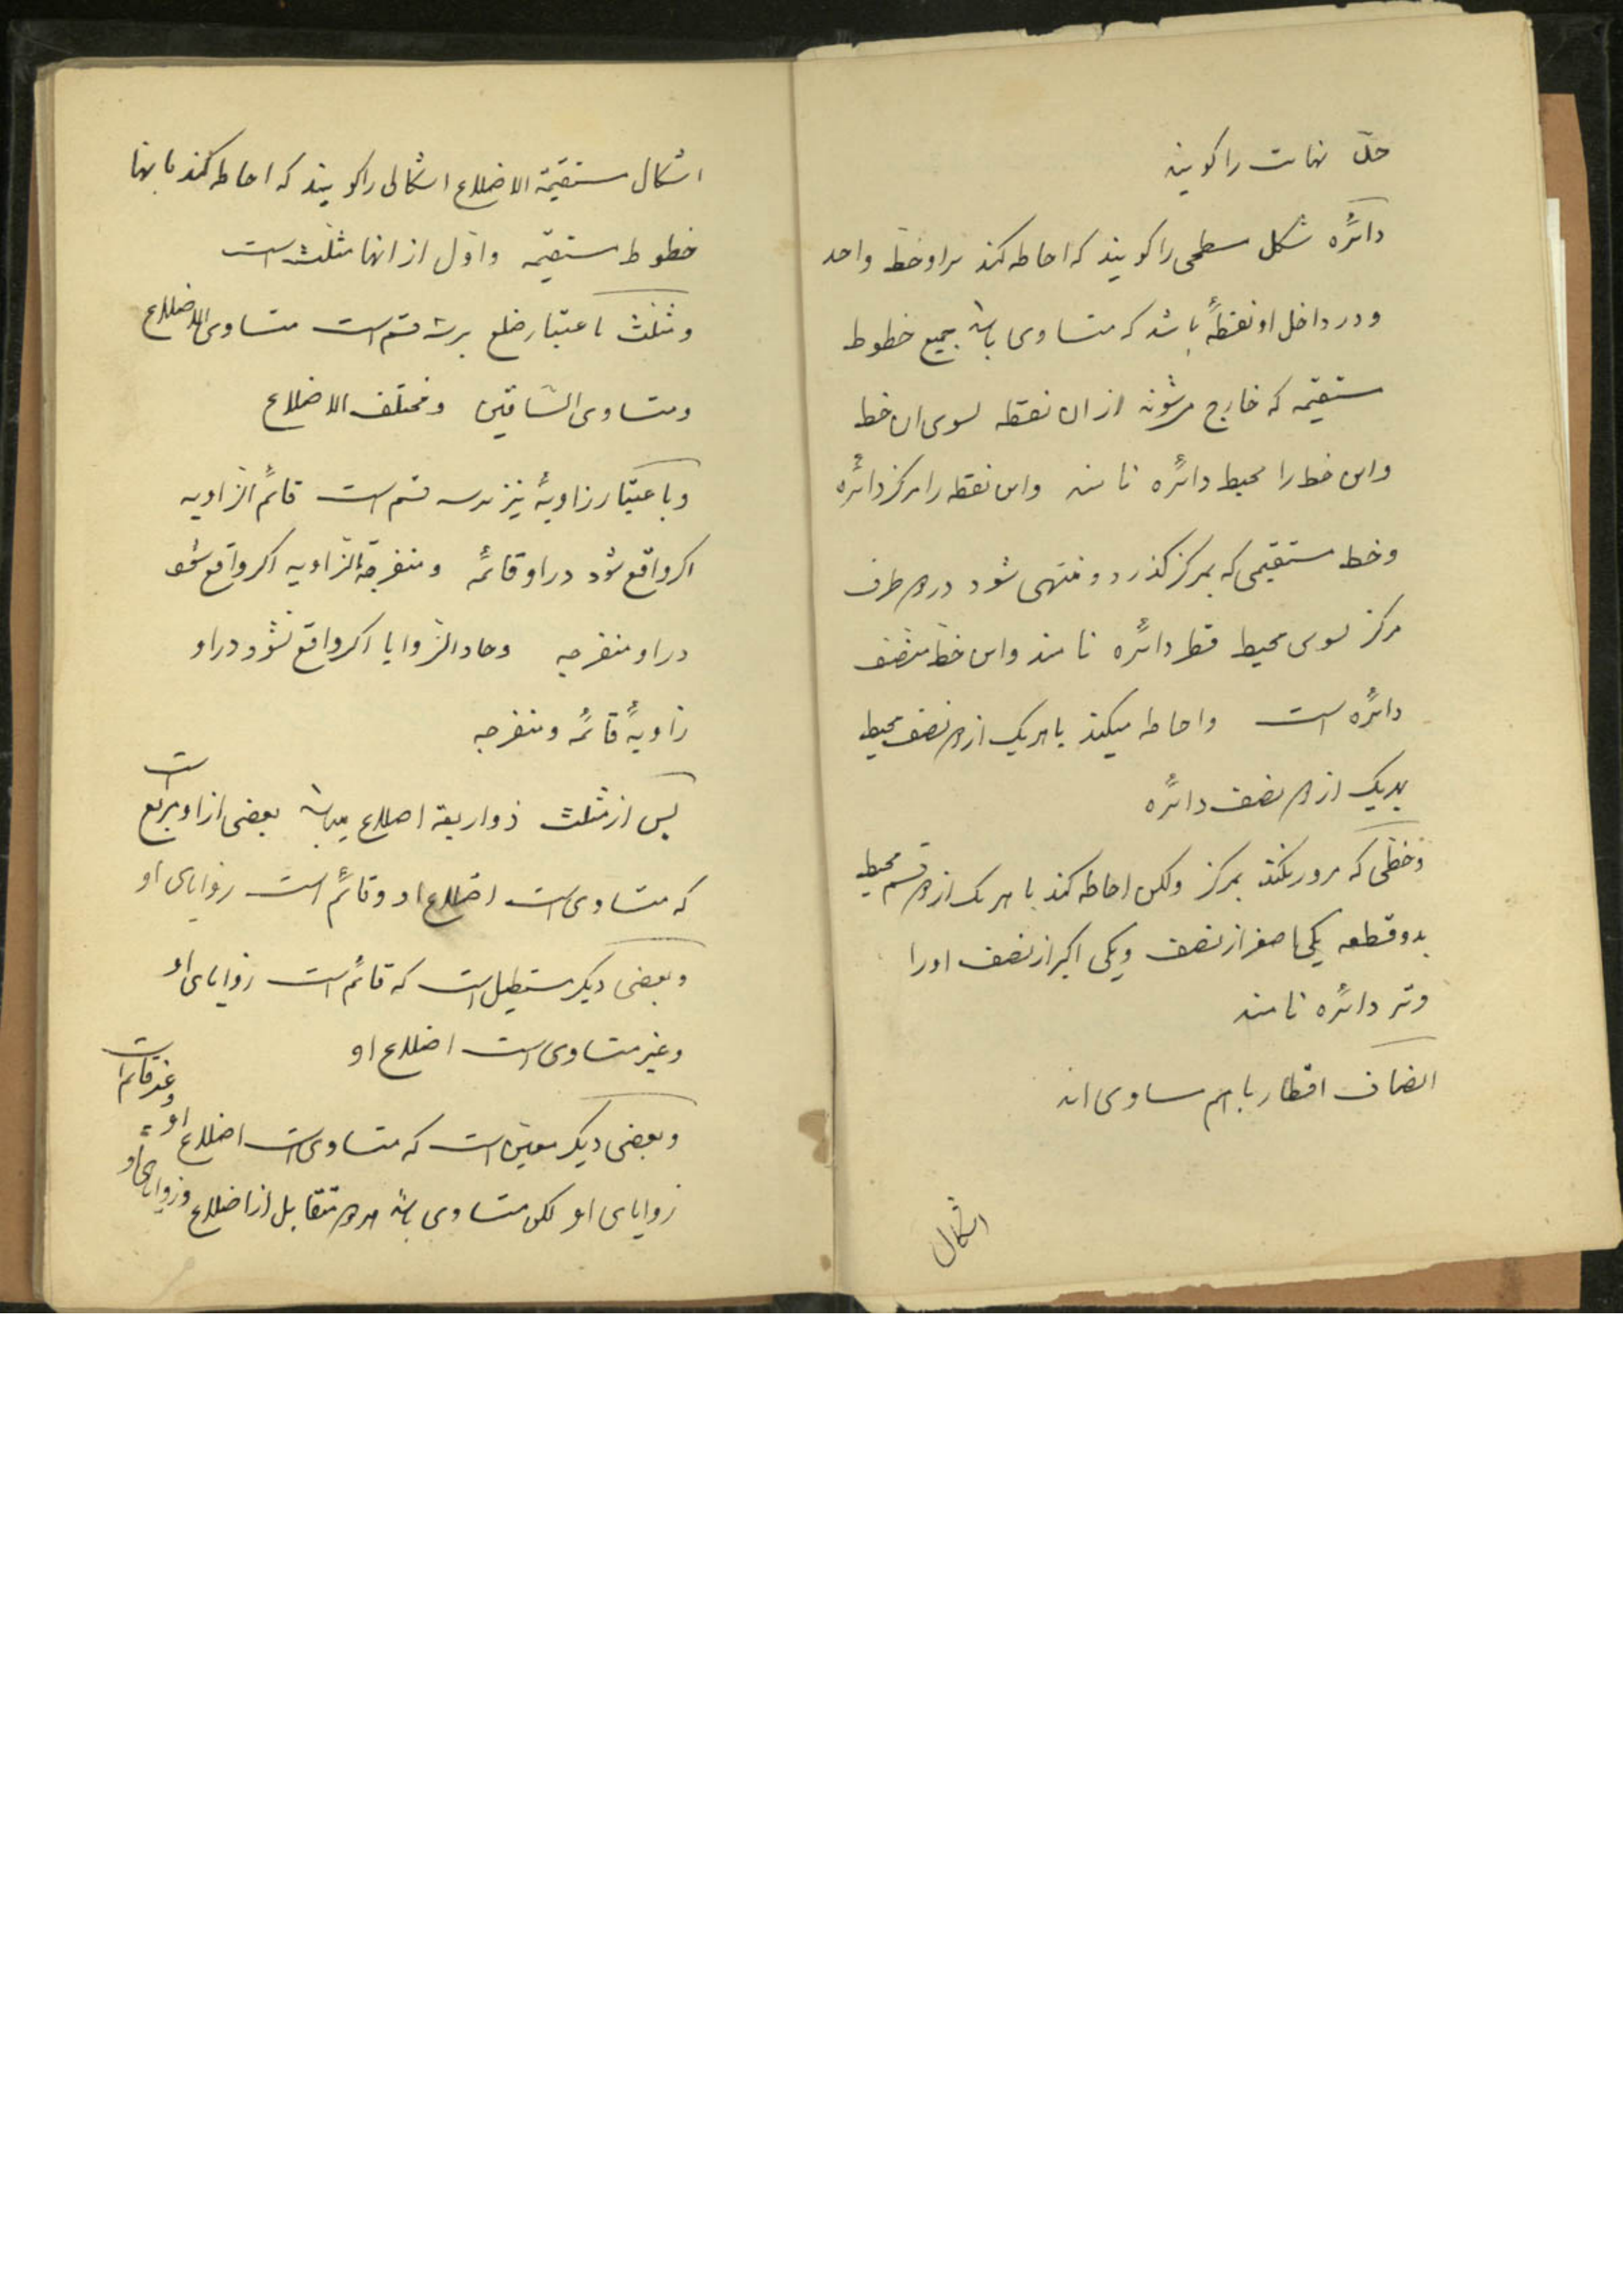 حدّ نهایت را کویند
دائره شکل سطحی را کویند که احاطه کند براو خطّ واحد
و در داخل او نقطهٔ باشد که متساوی باشد جمیع خطوط
مستقیمه که خارج میشوند از ان نقطه بسوی ان خط
واین خط را محیط دائره نامند واین نقطه را مرکز دائره
وخط مستقیمی که بمرکز کذرد و منتهی شود در دو طرف
مرکز بسوی محیط قطر دائره نامند واین خط منصّف
دائره است واحاطه میکند با هریک از دو نصف محیط
بهریک از دو نصف دائره
وخطّی که مرور نکند بمرکز ولکن احاطه کند با هریک از دو قسم محیط
بدو قطعه یکی اصغر از نصف ویکی اکبر از نصف اورا
وتر دائره نامند
انصاف اقطار باهم مساوی اند
اشکال
اشکال مستقیمة الاضلاع اشکالی را کویند که احاطه کند بانها
خطوط مستقیمه واوّل از انها مثلّث است
ومثلّث باعتبار ضلع برسه قسم است متساوی الاضلاع
ومتساوی السّاقین ومختلف الاضلاع
وباعتبار زاویهٔ نیز برسه قسم است قائم الزاویه
اکر واقع شود در او قائمه ومنفرجة الزّاویه اکر واقع شود
در او منفرجه وحادّ الزّوایا اکر واقع نشود در او
زاویهٔ قائمه ومنفرجه
پس از مثلّث ذو اربعة اضلاع میباشد بعضی از او مربّع است
که متساوی است اضلاع او وقائم است زوایای او
وبعضی دیکر مستطیل است که قائم است زوایای او
وغیر متساوی است اضلاع او
وبعضی دیکر معیّن است که متساوی است اضلاع او وغیر قائم است
زوایای او لکن متساوی باشد هر دو متقابل از اضلاع وزوایای او